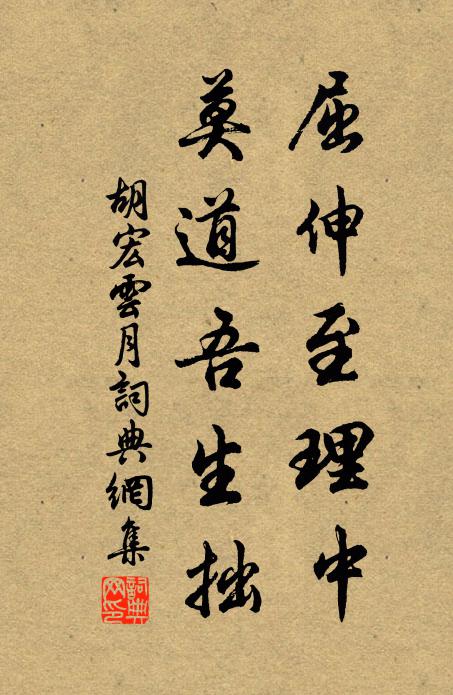 屈伸至理中
莫道吾生拙
胡宏雲月詞典網集
詞典网印